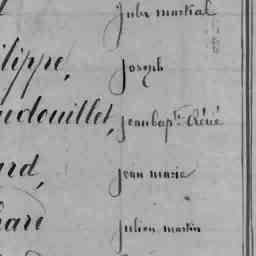 Jules martial
ilippe, Joseph
udouillet, jean bap.te Réné
ard, jean marie
hard Julien martin